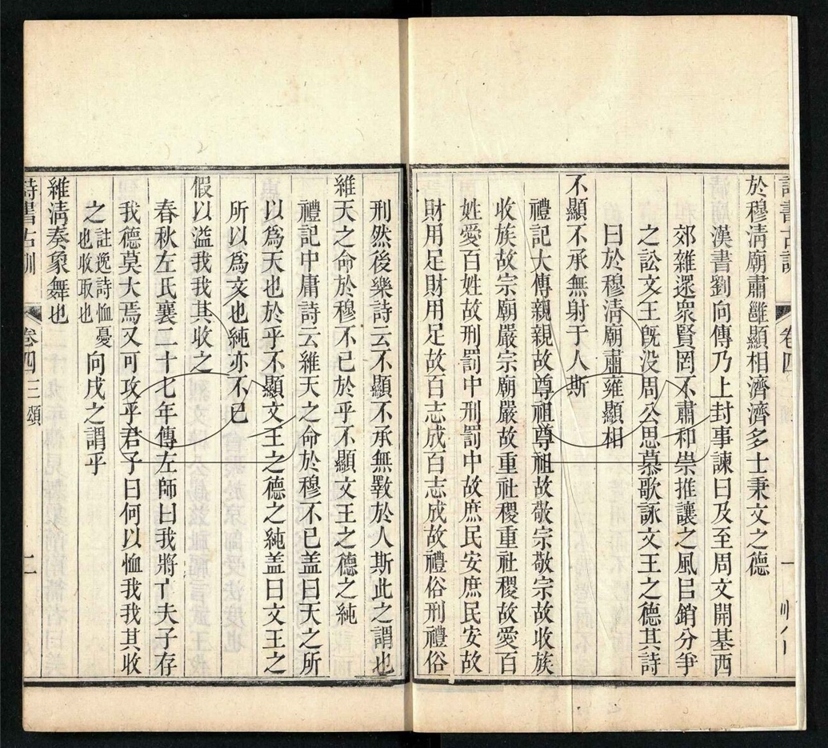 於穆清廟肅雝顯相濟濟多士秉文之德
漢書劉向傳乃上封事諫曰及至周文開基西
郊雜遝衆賢罔不肅和崇推讓之風㠯銷分爭
之訟文王旣没周公思慕歌詠文王之德其詩
曰於穆清廟肅雍顯相
不顯不承無射于人斯
禮記大傳親親故尊祖尊祖故敬宗敬宗故收族
收族故宗廟嚴宗廟嚴故重社稷重社稷故愛百
姓愛百姓故刑罰中刑罰中故庶民安庶民安故
財用足財用足故百志成百志成故禮俗刑禮俗
刑然後樂詩云不顯不承無斁於人斯此之謂也
維天之命於穆不已於乎不顯文王之德之純
禮記中庸詩云維天之命於穆不已葢曰天之所
以爲天也於乎不顯文王之德之純葢曰文王之
所以爲文也純亦不已
假以溢我我其收之
春秋左氏襄二十七年傳左師曰我將亡夫子存
我德莫大焉又可攻乎君子曰何以恤我我其收
之註逸詩恤憂也收取也向戌之謂乎
維淸奏象舞也
詩書古訓 卷四 三頌 二